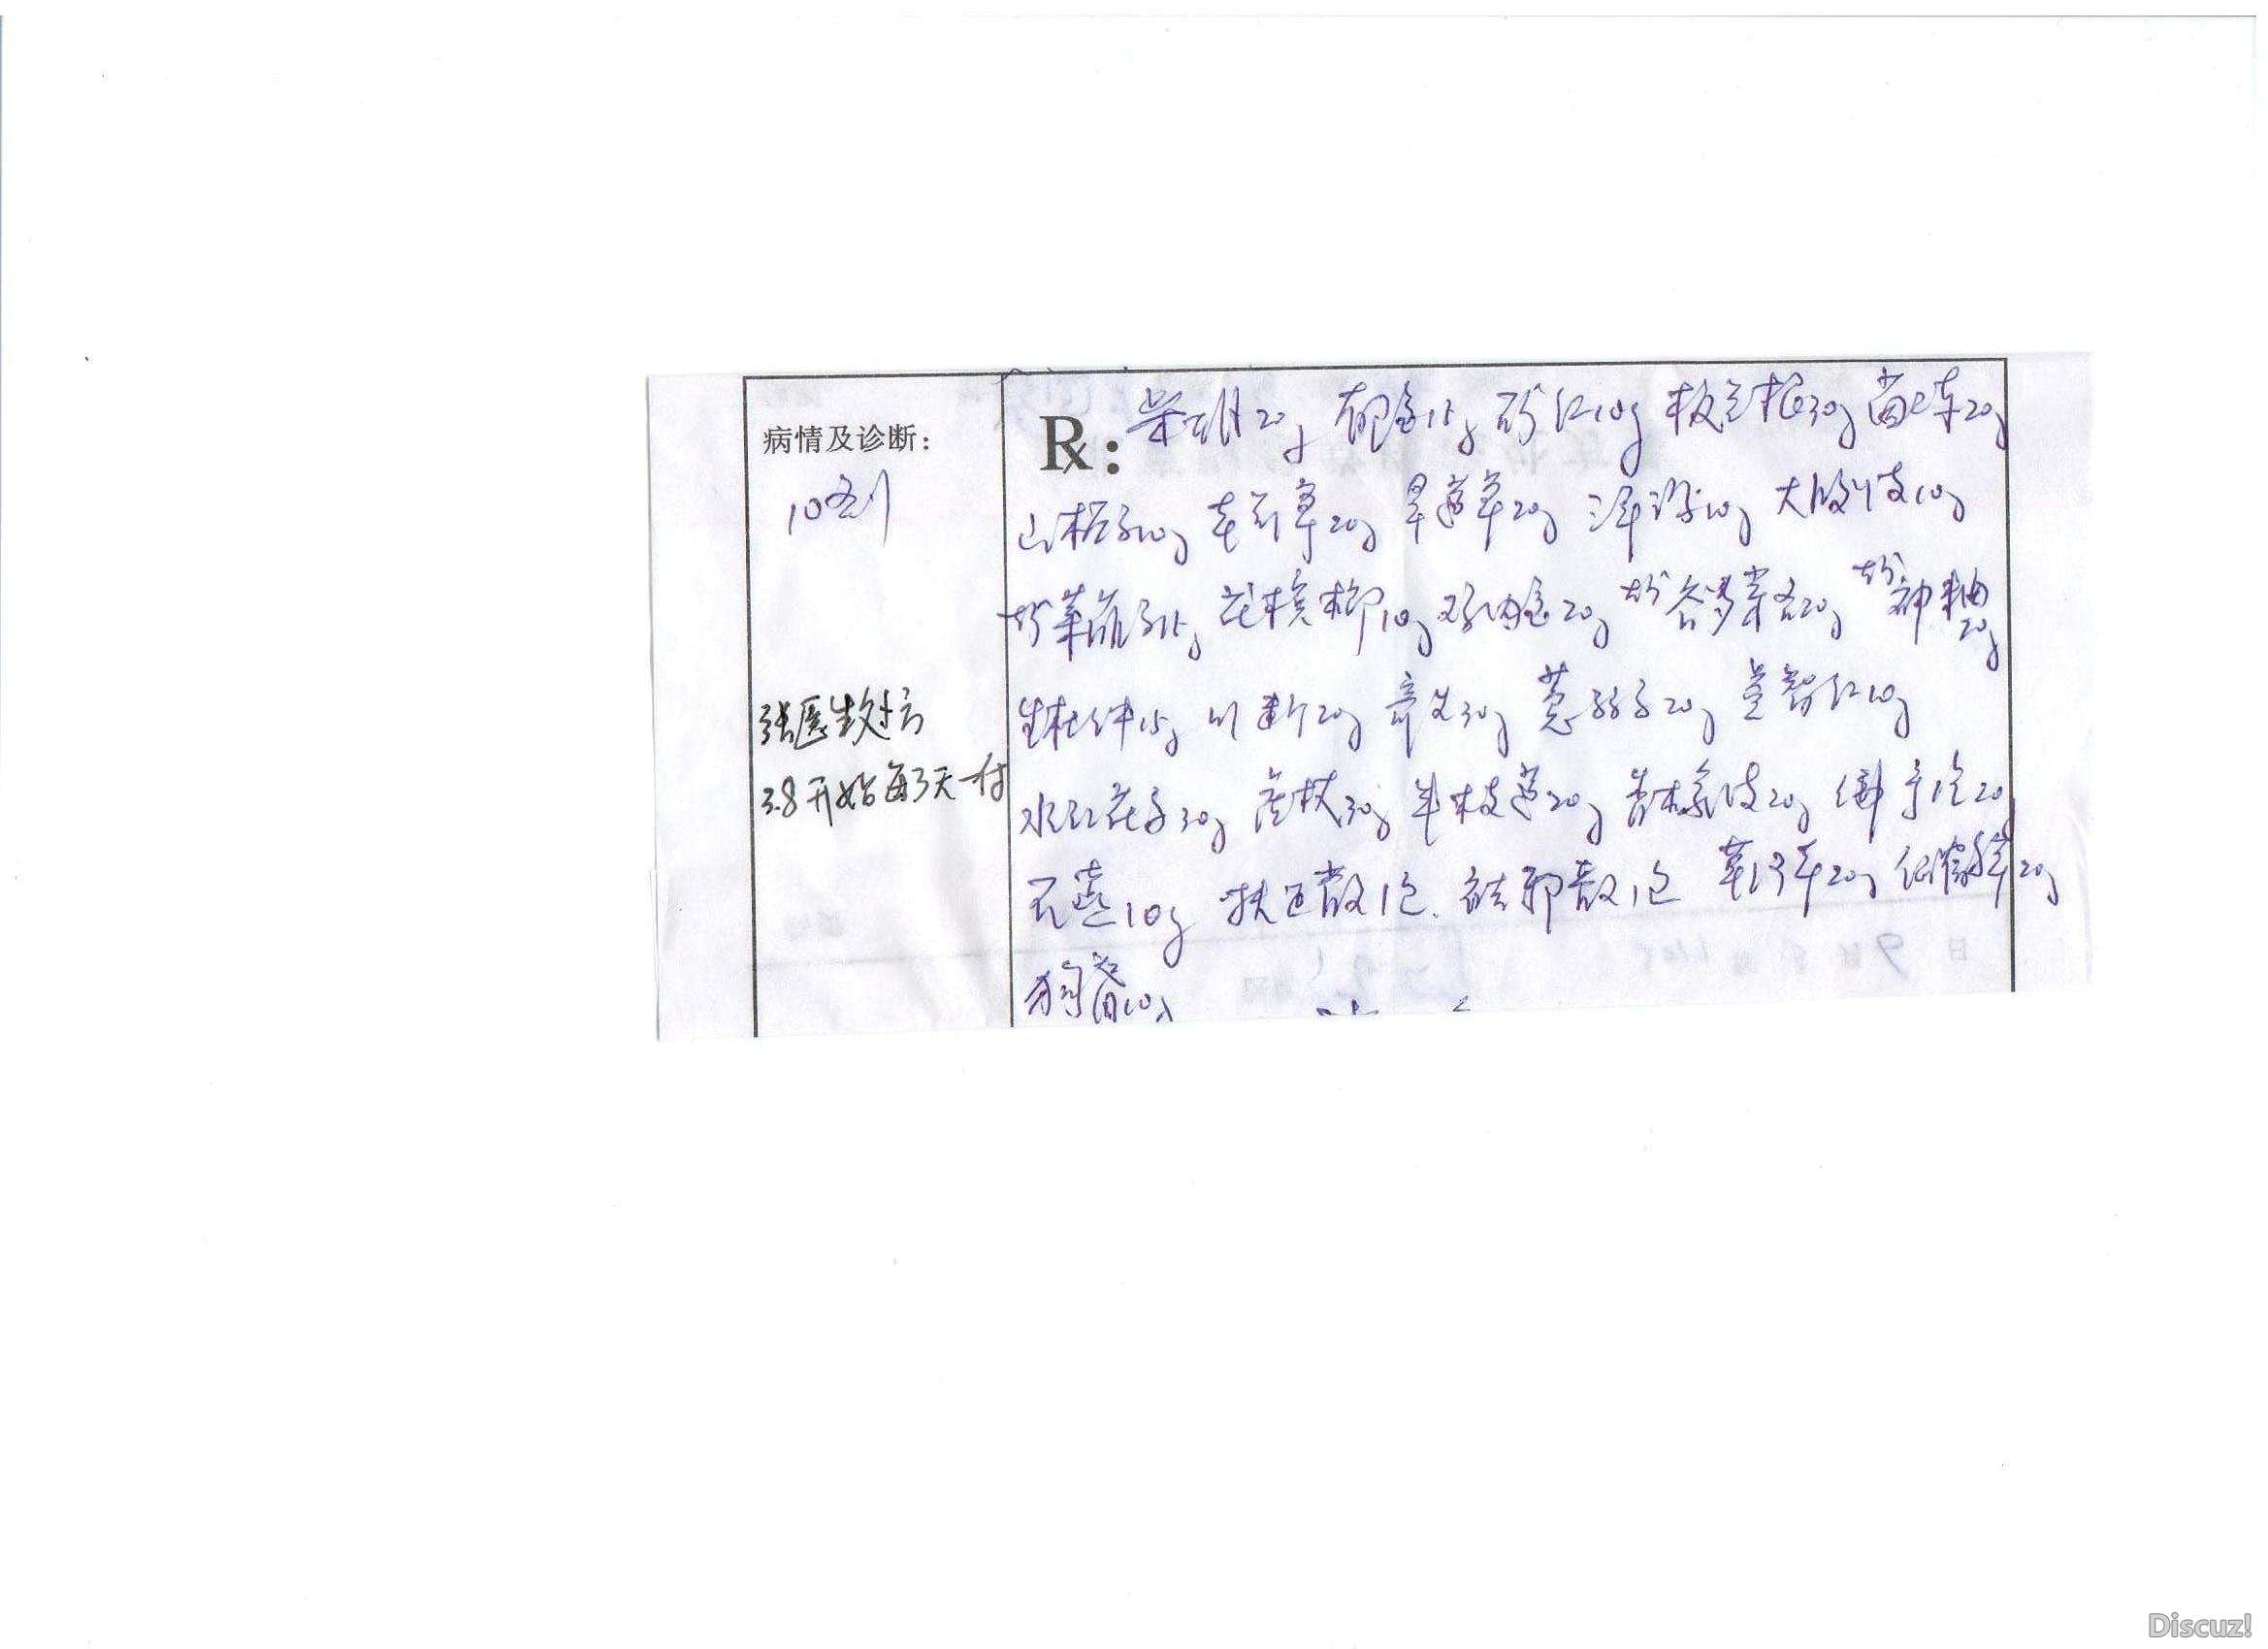 病情及诊断:
10剂
张医生处方
3.8开始每3天一付
Rx: 柴胡20g 郁金15g 砂仁10g 板兰根30g 茵陈20g
山栀子10g 车前草20g 旱莲草20g 泽泻10g 大腹皮10g
炒莱菔子15g 花槟榔10g 鸡内金20g 炒谷麦芽各20g 炒神曲20g
生杜仲15g 川断20g 寄生30g 菟丝子20g 益智仁10g
水红花子30g 虎杖30g 半枝莲20g 20g 佛手片20
10g 扶正散1包. 祛邪散1包 20g 20g
狗脊10g
Discuz!